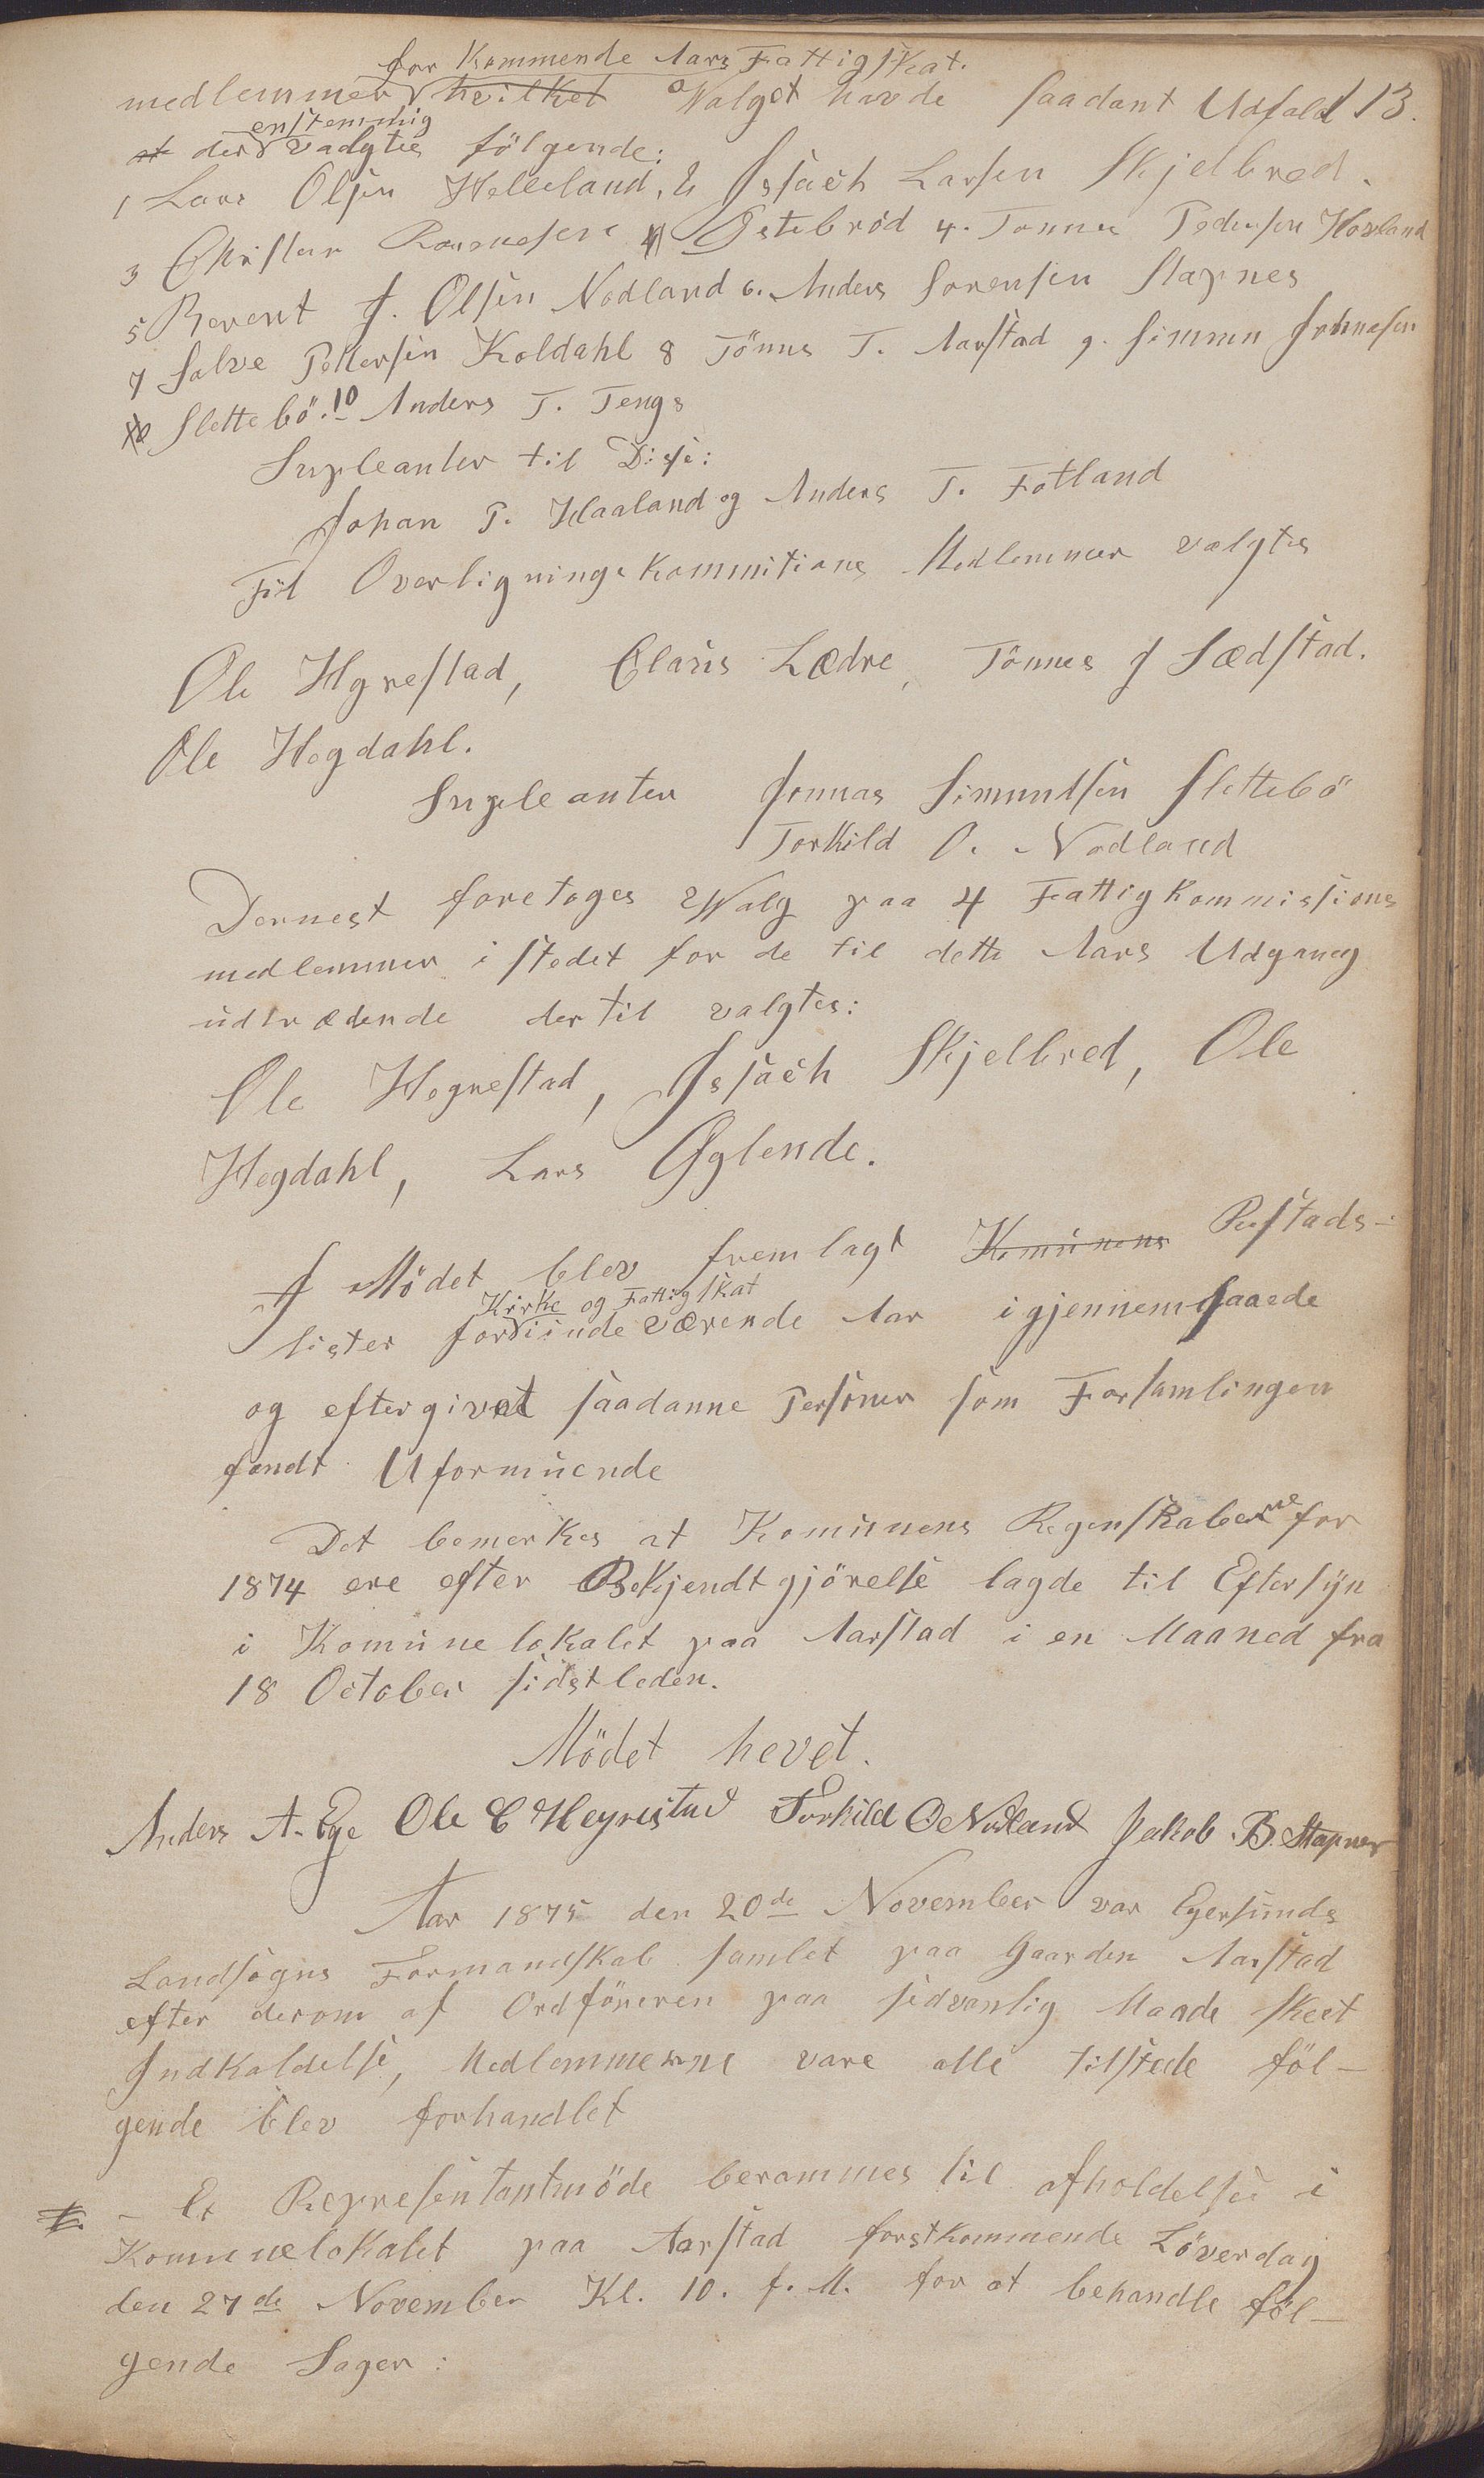 for Kommende Aars Fattigskat.
medlemmer hvilket Valget havde saadant Udfald 13.
enstemmig
at der valgtes fölgende:
1 Lars Olsen Helleland, 2 Issach Larsen Skjelbred.
3 Christen Rasmusen Østebröd 4. Tønnes Pedersen Hovland
5 Berent J. Olsen Nodland 6. Anders Sorensen Stapnes
7 Salve Pettersen Koldahl 8 Tönnes T. Aarstad 9. Simmen Johnasen
Slettebö. 10 Anders T. Tengs
Supleanter til Disse:
Johan P. Haaland og Anders T. Fotland
Til Overligningskommitions Medlemmer valgtes
Ole Hgrestad, Claus Lædre, Tönnes J Sædstad.
Ole Hegdahl.
Supleanter Jonnas Simundsen Slettebö
Torkild O. Nodland
Dernest foretoges Valg paa 4 Fattigkommissions
medlemmer i stedet for de til dette Aars Udgang
udtrædende dertil valgtes:
Ole Hegrestad, Issach Skjelbred, Ole
Hegdahl, Lars Øglende.
I Mödet blev fremlagt Komunens Restads-
Kirke og Fattigskat
lister for indeværende Aar igjennemgaaede
og eftergivet saadanne Personer som Forsamlingen
fandt Uformuende
Det bemerkes at Komunens Regenskaberne for
1874 ere efter Bekjendtgjörelse lagde til Eftersyn
i Komunelokalet paa Aarstad i en Maaned fra
18 October sidstleden.
Mödet hevet.
Anders A. Ege Ole C Hegrestad Torkild O Nodland Jakob B. Stapnes
Aar 1875 den 20de November var Egersunds
Landsogns Formandskab samlet paa Gaarden Aarstad
efter derom af Ordföreren paa sedvanlig Maade skeet
Indkaldelse, Medlemmerne vare alle tilstede föl-
gende blev forhandlet
- Et Representantmöde berammes til afholdelse i
Komunelokalet paa Aarstad forstkommende Löverdag
den 27de November Kl. 10. f. M. for at behandle föl-
gende Sager: